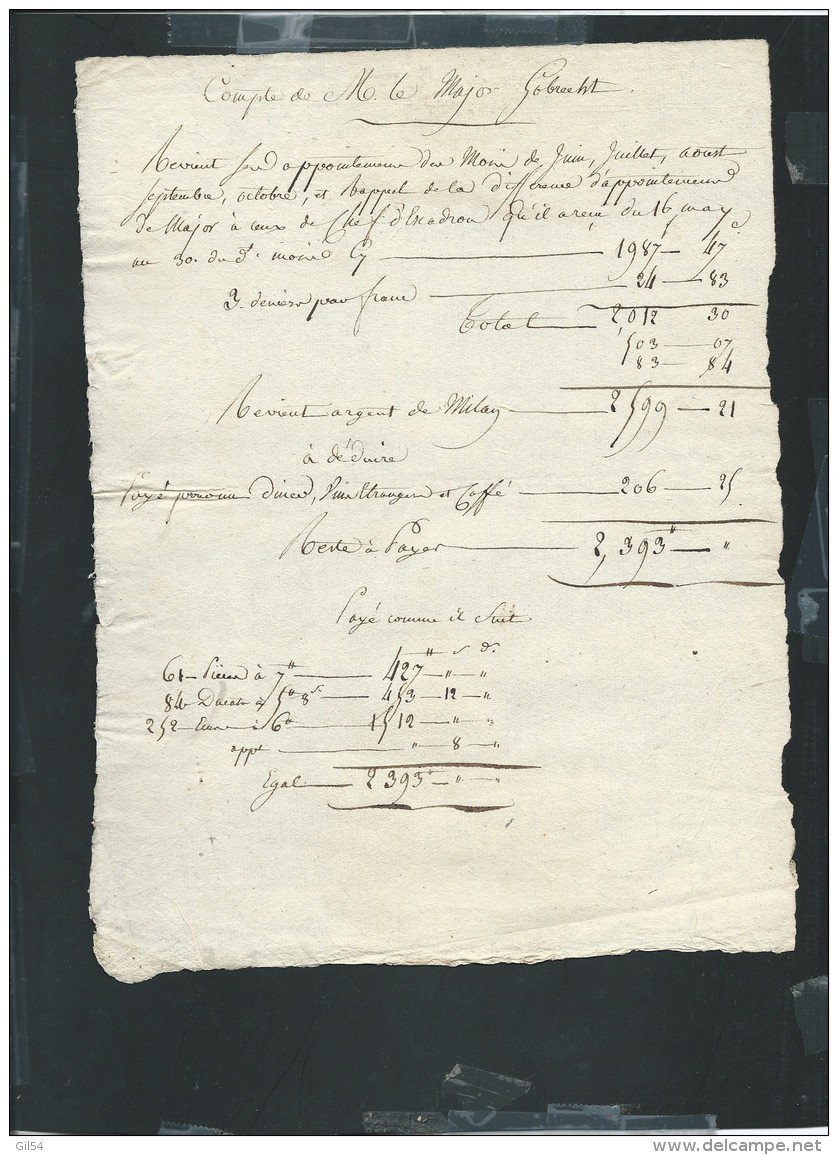 Compte de M. le Major Gobrecht.
Revient ses appointemens des Mois de Juin, Juillet, aoust
septembre, octobre, et Rappel de la difference d'appointemens
de Major à ceux de Chef d'Escadron qu'il a reçu du 16 may
au 30. du dt. mois Cy 1987 47 c
3. deniers par franc 24 83
Total 2012 30
503 07
83 84
Revient argent de Milan 2599 21
à déduire
Payé pour un diner, Vins Etrangers et Caffé 206 25
Reste à Payer 2,393 "
Payé comme il Suit
s ds.
61 Pièces à 7" 427 " "
84 Ducats à 5" 8s. 453 12 "
252 Ecus à 6" 1512 " "
appt " 8 "
Egal 2393 " "
Gil54
www.delcampe.net